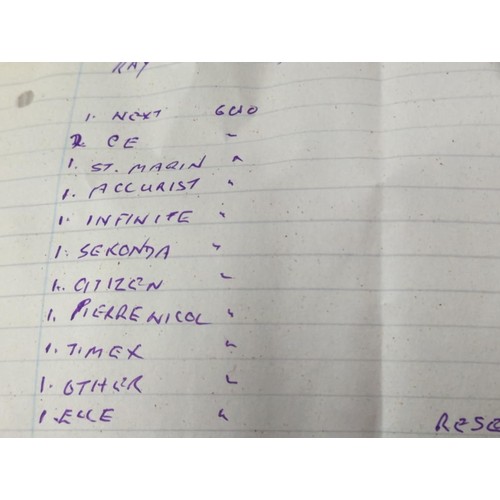 RAY
1. NEXT GWO
2. CE "
1. ST. MARIN "
1. ACCURIST "
1. INFINITE "
1. SEKONDA "
1. CITIZEN "
1. PIERRE NICOL "
1. TIMEX "
1. OTHER "
1. ELLE "
RESE